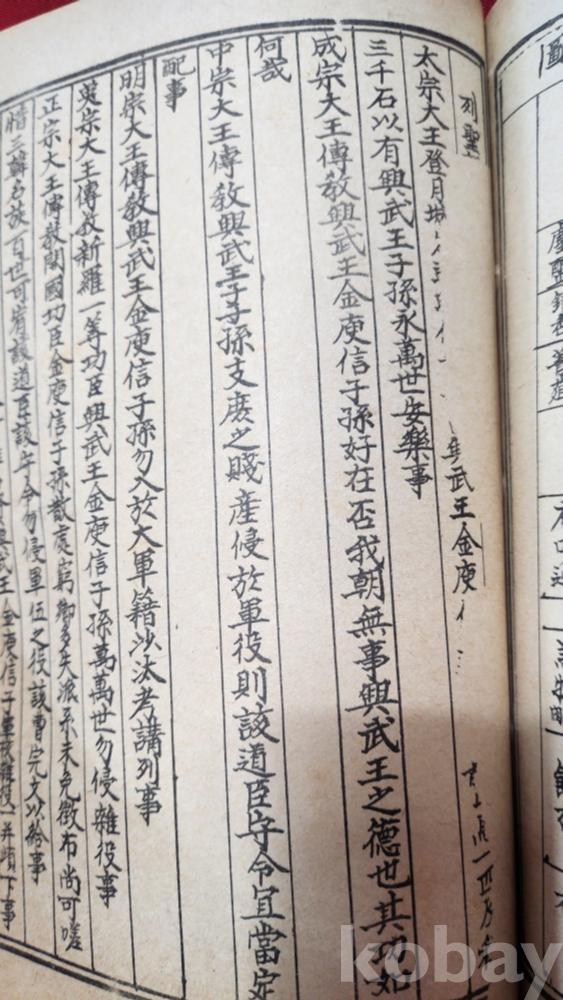 列聖
太宗大王登月城 武王金庾 一匹及
三千石以有興武王子孫永萬世安樂事
成宗大王傳敎興武王金庾信子孫好在否我朝無事興武王之德也其功如
何哉
中宗大王傳敎興武王子孫支庶之賤産侵於軍役則該道臣守令宜當定
配事
明宗大王傳敎興武王金庾信子孫勿入於大軍籍沙汰考講列事
英宗大王傳敎新羅一等功臣興武王金庾信子孫萬萬世勿侵雜役事
正宗大王傳敎開國功臣金庾信子孫散處窮鄕多失派系未免徵布尚可嗟
惜三韓名族百世可宥該道臣該守令勿侵軍伍之役該曹完文以給事
武王金庾信子孫軍役雜役一并頉下事
kobay